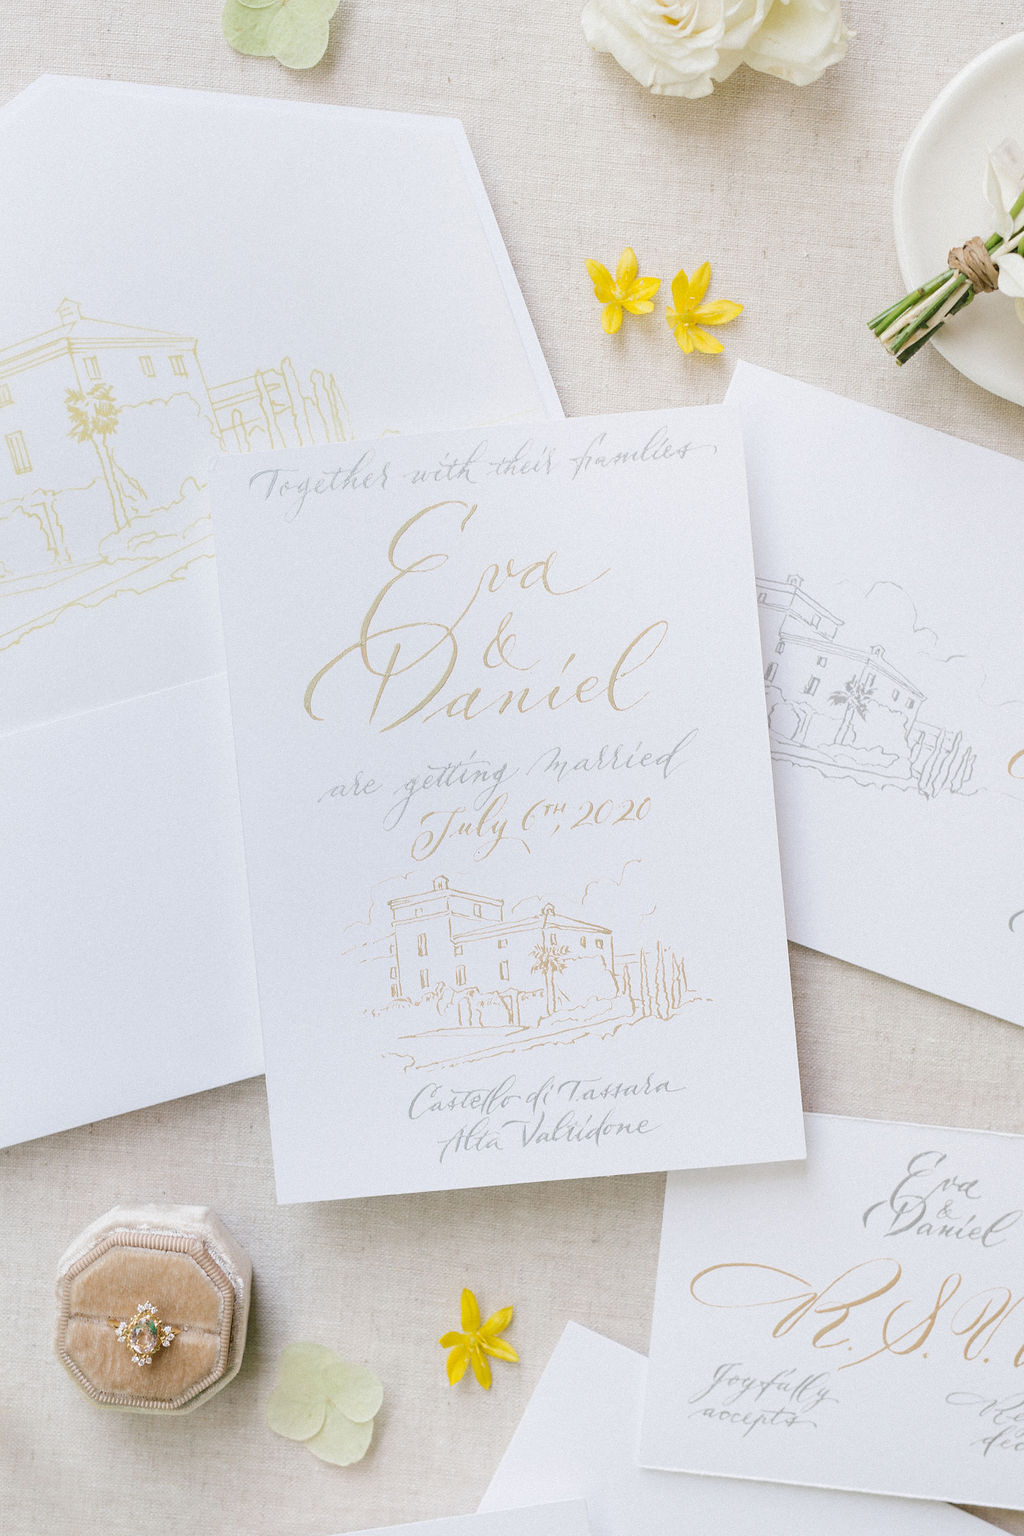 Together with their families
Eva
&
Daniel
are getting married
July 6TH, 2020
Castello di Tassara
Alta Valtidone
Eva
&
Daniel
R.S.V.
Joyfully
accepts